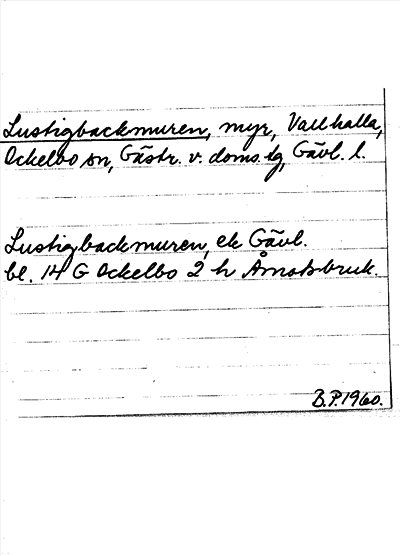 Lustigbackmuren, myr, Vallhalla,
Ockelbo sn, Gästr. v. doms.tg, Gävl. l.
Lustigbackmuren, ek Gävl.
bl. 14 G Ockelbo 2 h Åmotsbruk.
B.P. 1960.